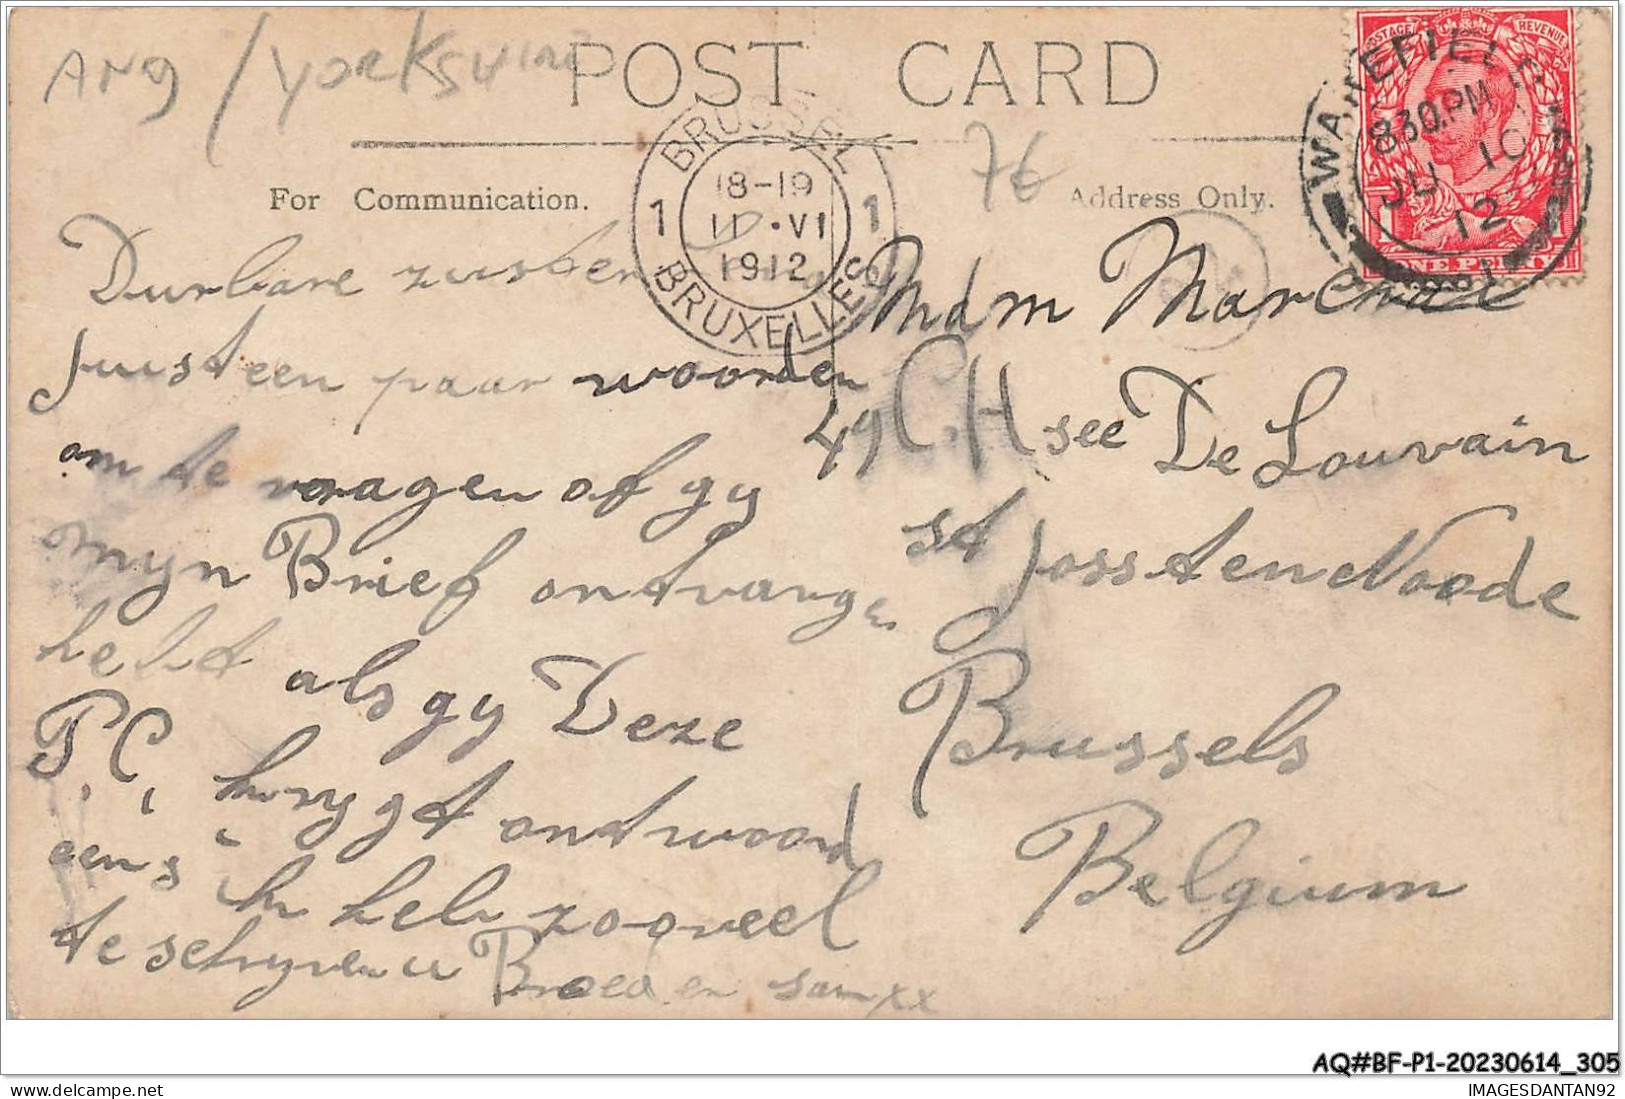 Ang / Yorkshire
POST CARD
76
For Communication.
Address Only.
POSTAGE REVENUE
ONE PENNY
WAKEFIELD
8 30.PM
JU 10
12
BRUSSEL
1 18-19 1
11 • VI
1912
BRUXELLES
Durbare zuster
Juist een paar woorden
om te vragen of gy
myn Brief ontvange
hebt als gy Deze
P.C, krygt antwoord
eens ik heb zooveel
te schryven u Broed en sam xx
Mdm Marchal
49 C.H see De Louvain
st Joss ten Noode
Brussels
Belgium
AQ#BF-P1-20230614_305
IMAGESDANTAN92